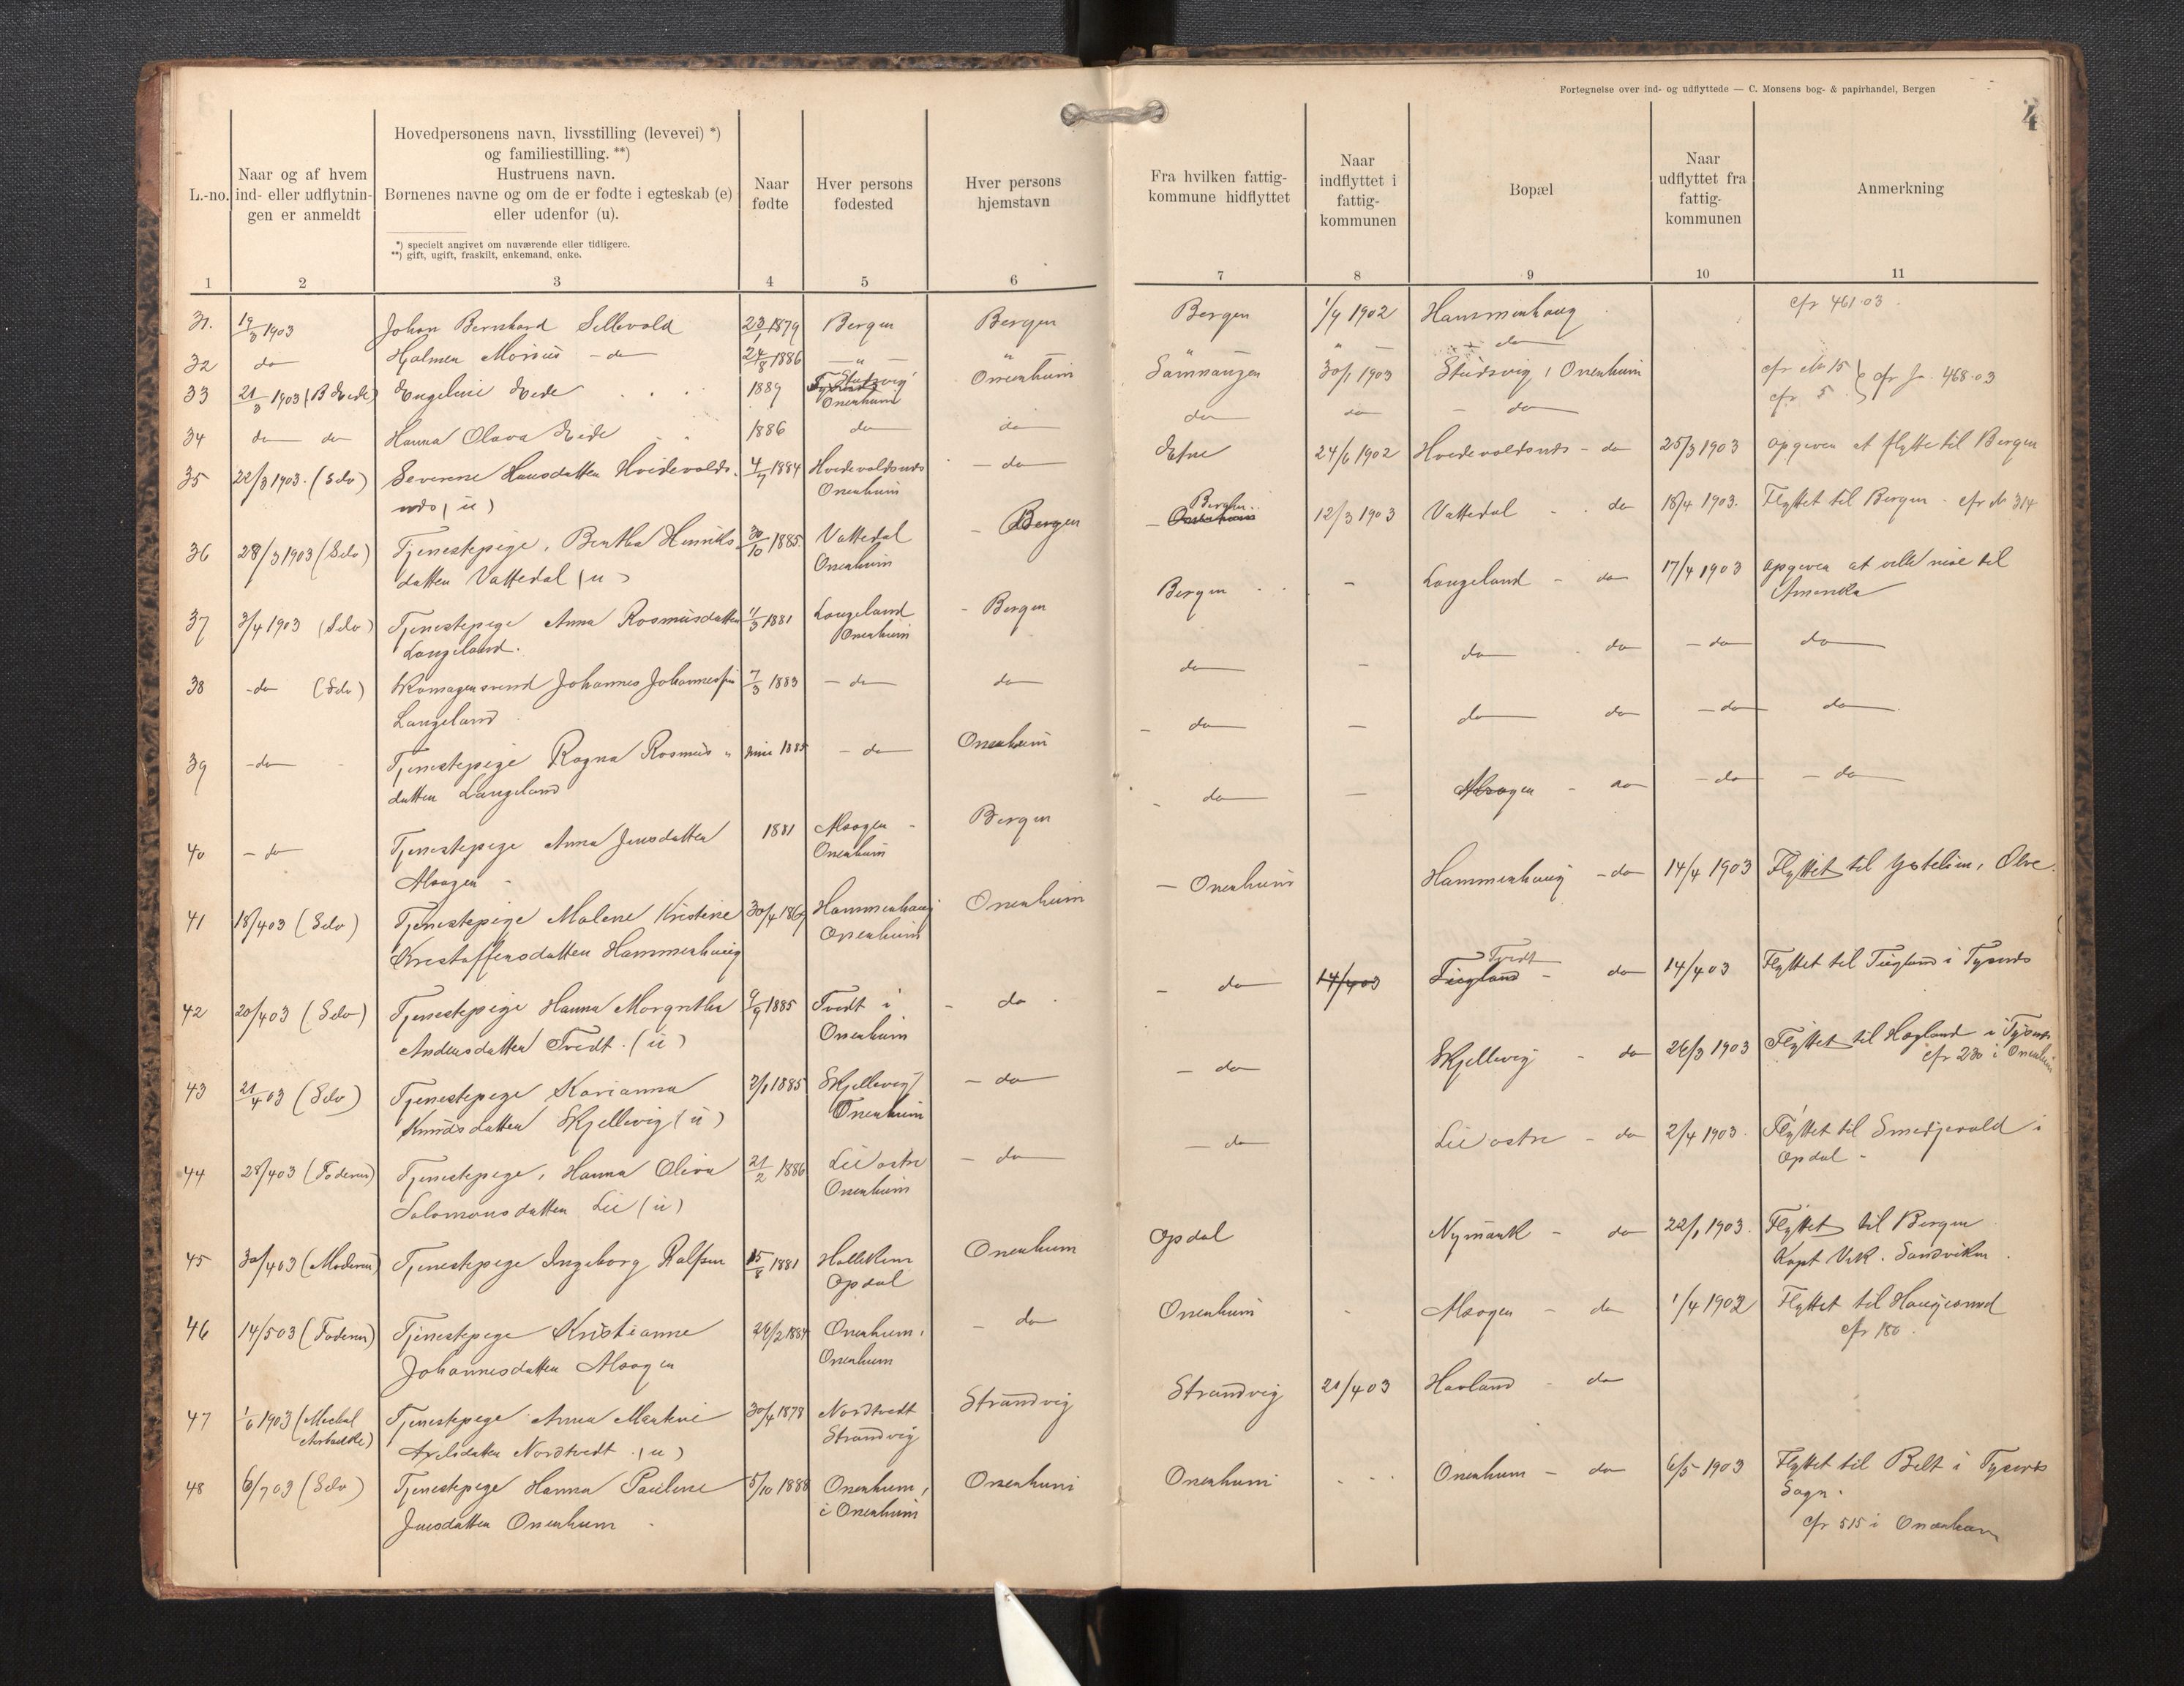 Fortegnelse over ind- og udflyttede — C. Monsens bog- & papirhandel, Bergen
4
L.-no.
Naar og af hvem
ind- eller udflytnin-
gen er anmeldt
Hovedpersonens navn, livsstilling (levevei) *)
og familiestilling. **)
Hustruens navn.
Børnenes navne og om de er fødte i egteskab (e)
eller udenfor (u).
*) specielt angivet om nuværende eller tidligere.
**) gift, ugift, fraskilt, enkemand, enke.
Naar
fødte
Hver persons
fødested
Hver persons
hjemstavn
Fra hvilken fattig-
kommune hidflyttet
Naar
indflyttet i
fattig-
kommunen
Bopæl
Naar
udflyttet fra
fattig-
kommunen
Anmerkning
1 2 3 4 5 6 7 8 9 10 11
31. 19/3 1903 Johan Bernhard Sellevold 23/1 1879 Bergen Bergen Bergen 1/9 1902 Hammenhaug cfr 461.03.
32 do Hjalmar — do 24/8 1886 — " — " " — do
33 21/3 1903 (B Eide) Engeline Eide 1889 Studsvig Onenheim Samnanger 30/1 1903 Studsvig i Onenheim cfr No 15 cfr Jr. 468.03
Onenheim cfr 5
34 do do Hanna Olava Eide 1886 do do do do — do
35 22/3 1903. (Selv) Severine Hansdatter Hvidevolds- 4/7 1884 Hvidevoldsnes — do Etne 24/6 1902 Hvidevoldsnes — do 25/3 1903 opgiven at flytte til Bergen
nes (u) Onenheim
36 28/3 1903 (Selv) Tjenestepige, Bertha Henriks 30/10 1885 Vattedal — Bergen — Bergen 12/3 1903 Vattedal — do 18/4 1903. Flyttet til Bergen - cfr No 314
datter Vattedal (u) Onenheim
37 3/4 1903 (Selv) Tjenestepige Anna Rasmusdatter 1/3 1881 Langeland - Bergen Bergen — Langeland — do 17/4 1903 opgiven at ville reise til
Langeland. Onenheim Amerika
38 -do (Selv) Johannes Johannessen 7/3 1883 — do do do — do do — do do
Langeland
39 -do Tjenestepige Ragna Rasmus- 1885 — do Onenheim — do — do do — do do
datter Langeland
40 — do Tjenestepige Anna Jensdatter 1881 Alsagen Bergen — do — Alsagen — do — do — do
Alsagen — Onenheim
41 18/4 03 (Selv) Tjenestepige Malene Kristine 30/4 Hammenhaug Onenheim — Onenheim Hammenhaug — do 14/4 1903 Flyttet til Ølve.
Kristoffersdatter Hammenhaug Onenheim
42 20/4 03 (Selv) Tjenestepige Hanna Margretha 9/9 1885 Tvedt i — do — do 14/4 03 Tvedt — do 14/4 03 Flyttet til Teigland i Tysnes
Andersdatter Tvedt. (u) Onenheim
43 21/4 03 (Selv) Tjenestepige Karianna 2/1 1885 Skjellevig — do — do Skjellevig — do 26/3 1903 Flyttet til Hagland i Tysnes
Knudsdatter Skjellevig (u) Onenheim cfr 230 i Onenheim
44 28/4 03 (Faderen) Tjenestepige, Hanna Oliva 21/2 1886 Lie østre — do — do Lie østre — do 2/4 1903. Flyttet til Smedjevold i
Salomonsdatter Lie (u) Onenheim Opdal -
45 30/4 03 (Moderen) Tjenestepige Ingeborg 15/8 1881 Onenheim Opdal Nymark — do 22/1 1903. Flyttet til Bergen
Opdal Sandviken.
46 14/5 03 (Faderen) Tjenestepige Kristianne 26/2 1884 Onenheim, — do Onenheim - Alsagen — do 1/4 1902 Flyttet til Haugesund
Johannesdatter Alsagen Onenheim cfr 180.
47 1/6 1903 (Mechal Tjenestepige Anna 30/4 1878 Nordtvedt Strandvig Strandvig 21/4 03 Havland — do
Nordtvedt. (u) Strandvig
48 6/7 03 (Selv) Tjenestepige Hanna Pauline 5/10 1888 Onenheim, Onenheim Onenheim - - - Onenheim — do 6/5 1903 Flyttet til Belt i Tysnes
Jensdatter Onenheim i Onenheim Sogn.
cfr 515 i Onenheim